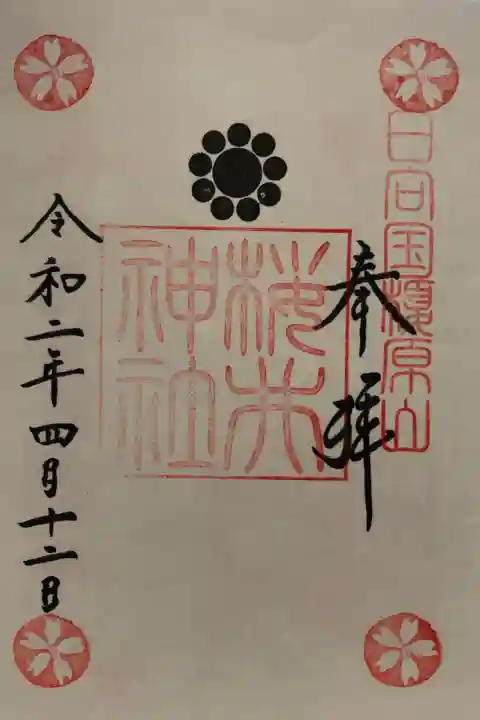 日向国榎原山
奉拝
桜井
神社
令和二年四月十二日